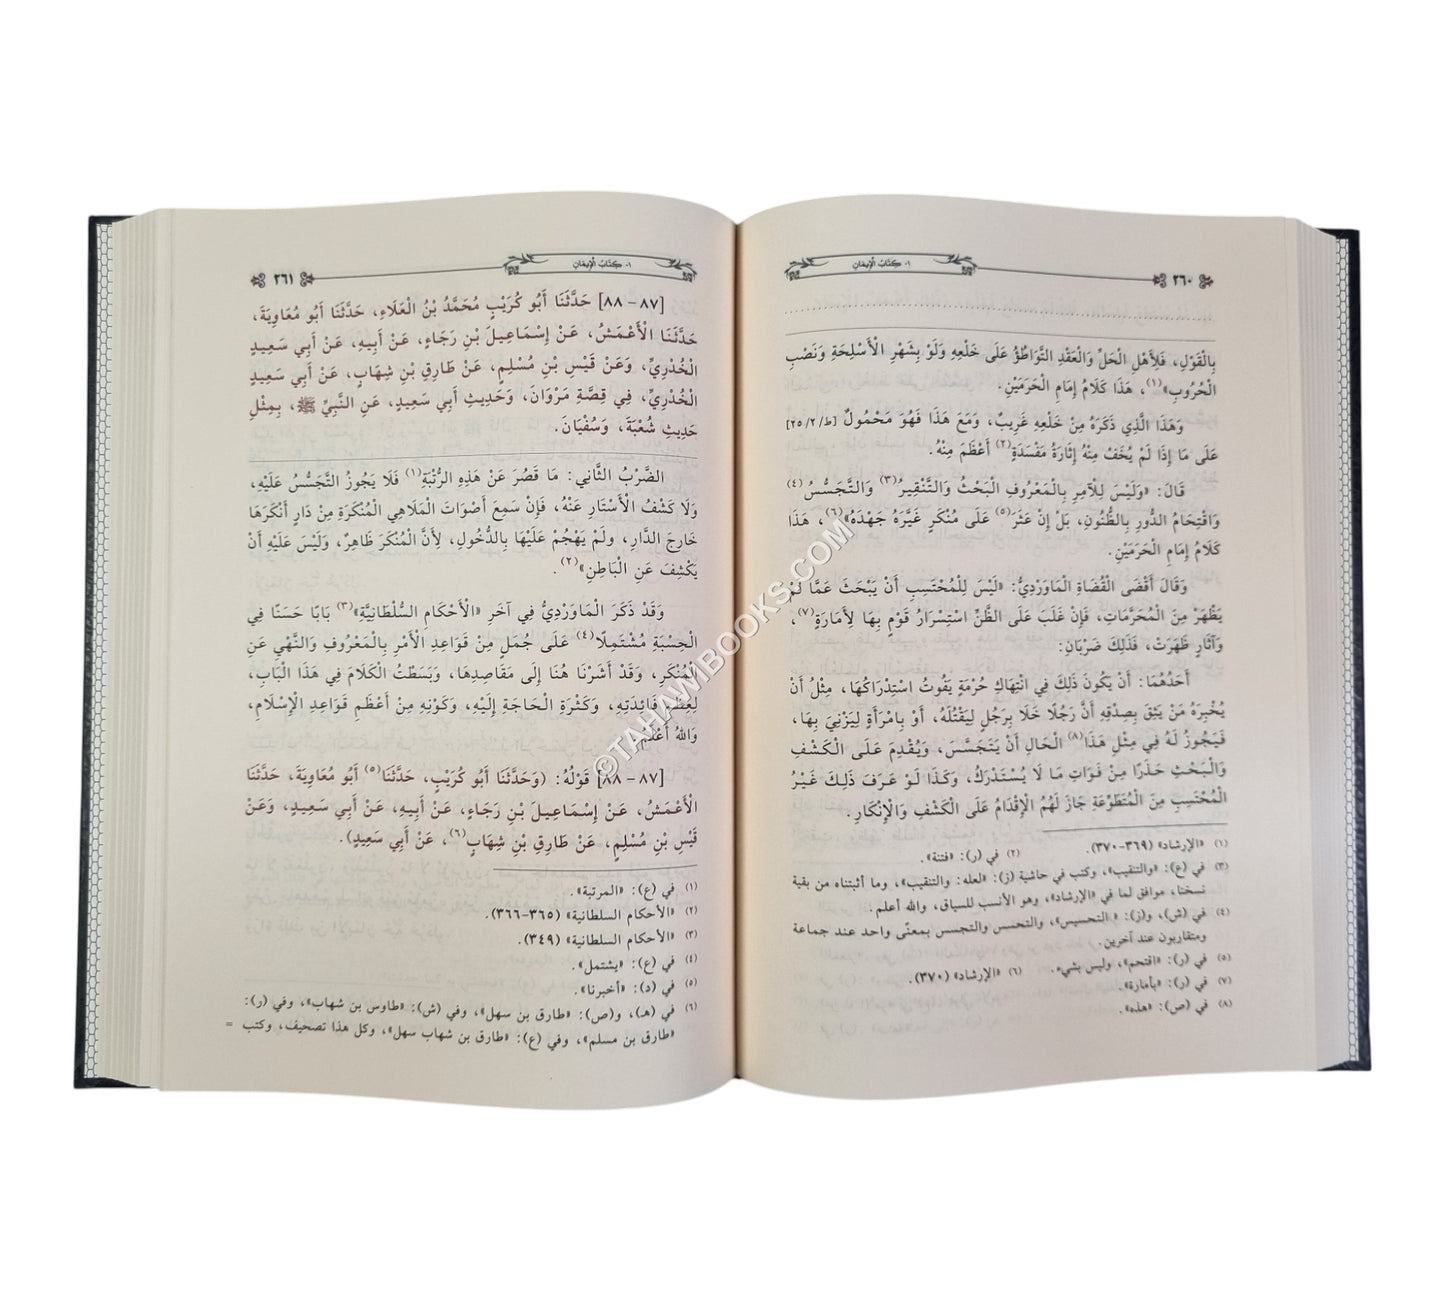 ٢٦٠
١- كِتَابُ الْإِيمَانِ
بِالْقَوْلِ، فَلِأَهْلِ الْحَلِّ وَالْعَقْدِ التَّوَاطُؤُ عَلَى خَلْعِهِ وَلَوْ بِشَهْرِ الْأَسْلِحَةِ وَنَصْبِ
الْحُرُوبِ»(١)، هَذَا كَلَامُ إِمَامِ الْحَرَمَيْنِ.
وَهَذَا الَّذِي ذَكَرَهُ مِنْ خَلْعِهِ غَرِيبٌ، وَمَعَ هَذَا فَهُوَ مَحْمُولٌ [ط/٢/٢٥]
عَلَى مَا إِذَا لَمْ يُخَفْ مِنْهُ إِثَارَةُ مَفْسَدَةٍ(٢) أَعْظَمَ مِنْهُ.
قَالَ: «وَلَيْسَ لِلْآمِرِ بِالْمَعْرُوفِ الْبَحْثُ وَالتَّنْقِيرُ(٣) وَالتَّجَسُّسُ(٤)
وَاقْتِحَامُ الدُّورِ بِالظُّنُونِ، بَلْ إِنْ عَثَرَ(٥) عَلَى مُنْكَرٍ غَيَّرَهُ جَهْدَهُ»(٦)، هَذَا
كَلَامُ إِمَامِ الْحَرَمَيْنِ.
وَقَالَ أَقْضَى الْقُضَاةِ الْمَاوَرْدِيُّ: «لَيْسَ لِلْمُحْتَسِبِ أَنْ يَبْحَثَ عَمَّا لَمْ
يَظْهَرْ مِنَ الْمُحَرَّمَاتِ، فَإِنْ غَلَبَ عَلَى الظَّنِّ اسْتِسْرَارُ قَوْمٍ بِهَا لِأَمَارَةٍ(٧)،
وَآثَارٍ ظَهَرَتْ، فَذَلِكَ ضَرْبَانِ:
أَحَدُهُمَا: أَنْ يَكُونَ ذَلِكَ فِي انْتِهَاكِ حُرْمَةٍ يَفُوتُ اسْتِدْرَاكُهَا، مِثْلُ أَنْ
يُخْبِرَهُ مَنْ يَثِقُ بِصِدْقِهِ أَنَّ رَجُلًا خَلَا بِرَجُلٍ لِيَقْتُلَهُ، أَوْ بِامْرَأَةٍ لِيَزْنِيَ بِهَا،
فَيَجُوزُ لَهُ فِي مِثْلِ هَذَا(٨) الْحَالِ أَنْ يَتَجَسَّسَ، وَيُقْدِمَ عَلَى الْكَشْفِ
وَالْبَحْثِ حَذَرًا مِنْ فَوَاتِ مَا لَا يُسْتَدْرَكُ، وَكَذَا لَوْ عَرَفَ ذَلِكَ غَيْرُ
الْمُحْتَسِبِ مِنَ الْمُتَطَوِّعَةِ جَازَ لَهُمُ الْإِقْدَامُ عَلَى الْكَشْفِ وَالْإِنْكَارِ.
(١) «الإرشاد» (٣٦٩-٣٧٠). (٢) في (ر): «فتنة».
(٣) في (ع): «والتنقيب»، وكتب في حاشية (ز): «لعله: والتنقيب»، وما أثبتناه من بقية
نسخنا، موافق لما في «الإرشاد»، وهو الأنسب للسياق، والله أعلم.
(٤) في (ش)، و(ز): «التحسيس»، والتحسس والتجسس بمعنًى واحد عند جماعة
ومتقاربون عند آخرين.
(٥) في (ر): «اقتحم»، وليس بشيء. (٦) «الإرشاد» (٣٧٠).
(٧) في (ر): «بأمارة».
(٨) في (ص): «هذه».
١- كِتَابُ الْإِيمَانِ
٢٦١
[٨٧ - ٨٨] حَدَّثَنَا أَبُو كُرَيْبٍ مُحَمَّدُ بْنُ الْعَلَاءِ، حَدَّثَنَا أَبُو مُعَاوِيَةَ،
حَدَّثَنَا الْأَعْمَشُ، عَنْ إِسْمَاعِيلَ بْنِ رَجَاءٍ، عَنْ أَبِيهِ، عَنْ أَبِي سَعِيدٍ
الْخُدْرِيِّ، وَعَنْ قَيْسِ بْنِ مُسْلِمٍ، عَنْ طَارِقِ بْنِ شِهَابٍ، عَنْ أَبِي سَعِيدٍ
الْخُدْرِيِّ، فِي قِصَّةِ مَرْوَانَ، وَحَدِيثِ أَبِي سَعِيدٍ، عَنِ النَّبِيِّ ﷺ، بِمِثْلِ
حَدِيثِ شُعْبَةَ، وَسُفْيَانَ.
الضَّرْبُ الثَّانِي: مَا قَصُرَ عَنْ هَذِهِ الرُّتْبَةِ(١) فَلَا يَجُوزُ التَّجَسُّسُ عَلَيْهِ،
وَلَا كَشْفُ الْأَسْتَارِ عَنْهُ، فَإِنْ سَمِعَ أَصْوَاتَ الْمَلَاهِي الْمُنْكَرَةِ مِنْ دَارٍ أَنْكَرَهَا
خَارِجَ الدَّارِ، وَلَمْ يَهْجُمْ عَلَيْهَا بِالدُّخُولِ، لِأَنَّ الْمُنْكَرَ ظَاهِرٌ، وَلَيْسَ عَلَيْهِ أَنْ
يَكْشِفَ عَنِ الْبَاطِنِ»(٢).
وَقَدْ ذَكَرَ الْمَاوَرْدِيُّ فِي آخَرِ «الْأَحْكَامِ السُّلْطَانِيَّةِ»(٣) بَابًا حَسَنًا فِي
الْحِسْبَةِ مُشْتَمِلًا(٤) عَلَى جُمَلٍ مِنْ قَوَاعِدِ الْأَمْرِ بِالْمَعْرُوفِ وَالنَّهْيِ عَنِ
الْمُنْكَرِ، وَقَدْ أَشَرْنَا هُنَا إِلَى مَقَاصِدِهَا، وَبَسَطْتُ الْكَلَامَ فِي هَذَا الْبَابِ،
لِعِظَمِ فَائِدَتِهِ، وَكَثْرَةِ الْحَاجَةِ إِلَيْهِ، وَكَوْنِهِ مِنْ أَعْظَمِ قَوَاعِدِ الْإِسْلَامِ،
وَاللهُ أَعْلَمُ.
[٨٧ - ٨٨] قَوْلُهُ: (وَحَدَّثَنَا أَبُو كُرَيْبٍ، حَدَّثَنَا(٥) أَبُو مُعَاوِيَةَ، حَدَّثَنَا
الْأَعْمَشُ، عَنْ إِسْمَاعِيلَ بْنِ رَجَاءٍ، عَنْ أَبِيهِ، عَنْ أَبِي سَعِيدٍ، وَعَنْ
قَيْسِ بْنِ مُسْلِمٍ، عَنْ طَارِقِ بْنِ شِهَابٍ(٦)، عَنْ أَبِي سَعِيدٍ).
(١) في (ع): «المرتبة».
(٢) «الأحكام السلطانية» (٣٦٥-٣٦٦).
(٣) «الأحكام السلطانية» (٣٤٩).
(٤) في (ع): «يشتمل».
(٥) في (د): «أخبرنا».
(٦) في (هـ)، و(ص): «طارق بن سهل»، وفي (ش): «طاوس بن شهاب»، وفي (ر):
«طارق بن مسلم»، وفي (ع): «طارق بن شهاب سهل»، وكل هذا تصحيف، وكتب =
©TAHAWIBOOKS.COM